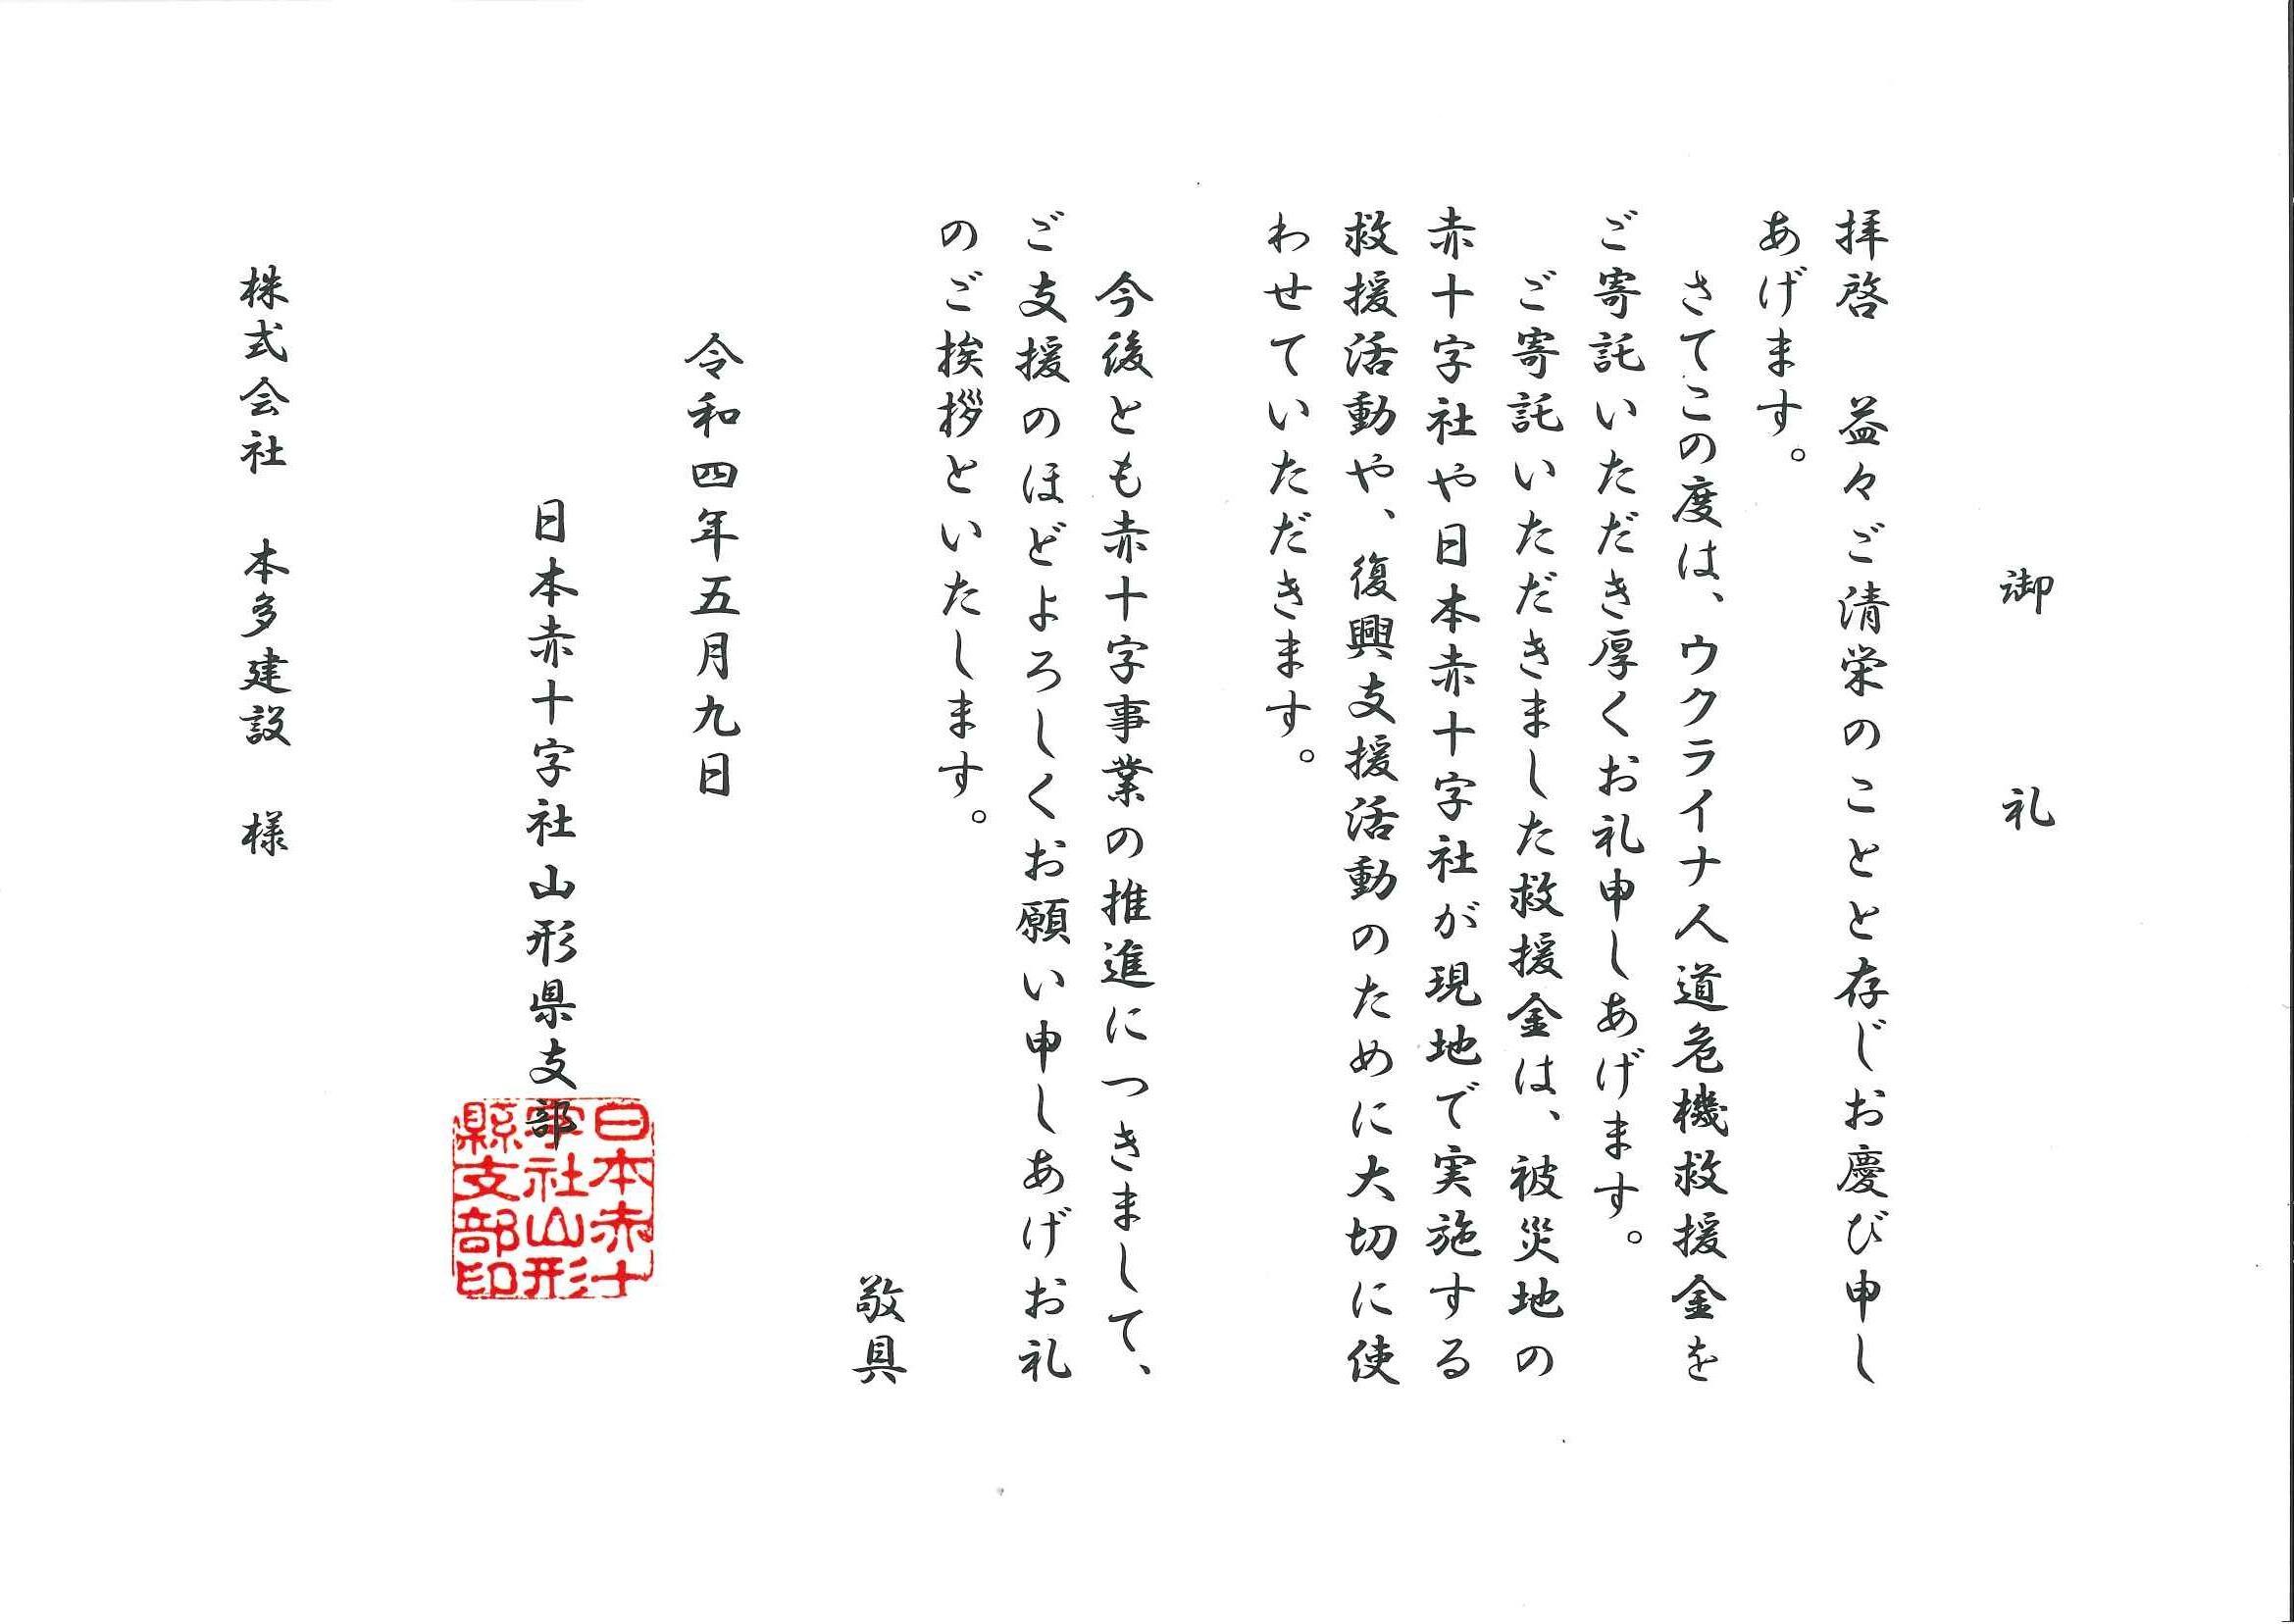 御礼
拝啓　益々ご清栄のことと存じお慶び申し
あげます。
さてこの度は、ウクライナ人道危機救援金を
ご寄託いただき厚くお礼申しあげます。
ご寄託いただきました救援金は、被災地の
赤十字社や日本赤十字社が現地で実施する
救援活動や、復興支援活動のために大切に使
わせていただきます。
今後とも赤十字事業の推進につきまして、
ご支援のほどよろしくお願い申しあげお礼
のご挨拶といたします。
敬具
令和四年五月九日
日本赤十字社山形県支部
日本赤十
字社山形
縣支部印
株式会社　本多建設　様